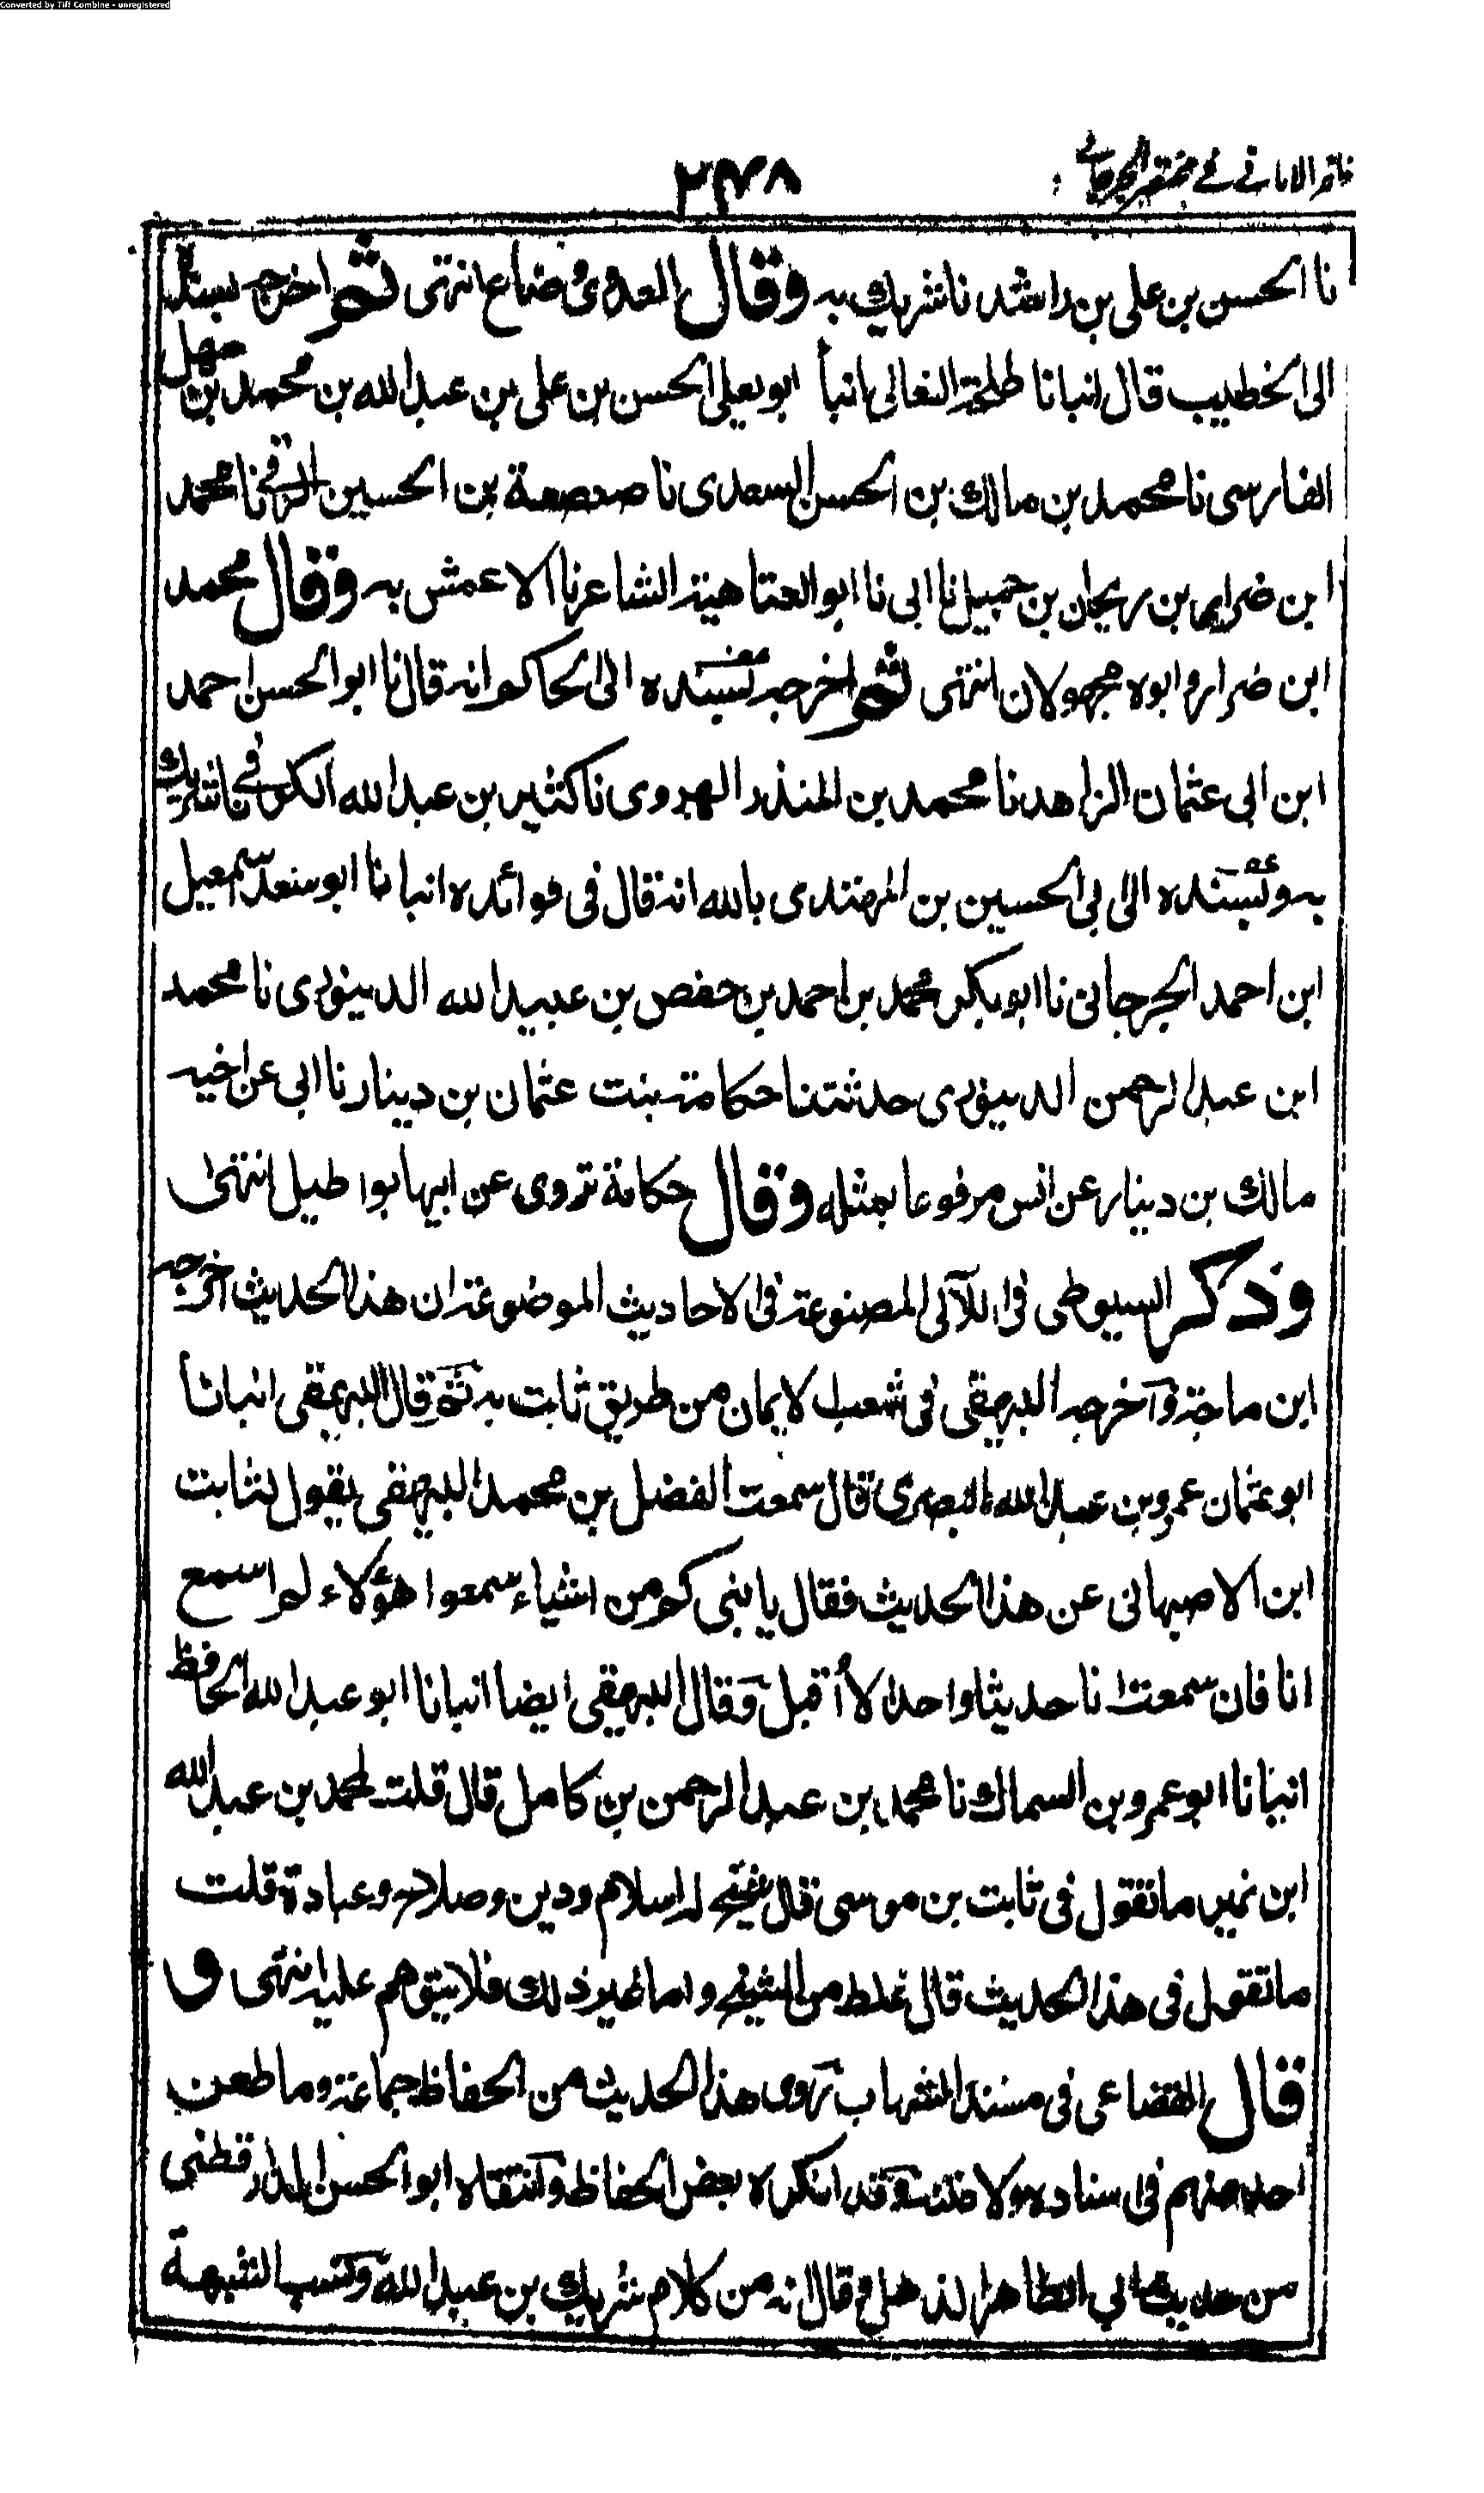 Converted by Tiff Combine - unregistered
ظفر الامانی فی مختصر الجرجانی
۲۳۸
نا الحسن بن علی بن راشد نا شریك به وقال العدوی وضاع انتهی ثم اخرجه بسنده
الی الخطیب قال انبانا طلحة النعالی انبأ ابو یعلی الحسن بن علی بن عبد الله بن محمد بن سهل
الفارسی نا محمد بن مالك بن الحسن السعدی نا صعصعة بن الحسین الرقی نا محمد
ابن ضرار بن ریحان بن جمیل نا ابی نا ابو العتاهیة الشاعر نا الاعمش به وقال محمد
ابن ضرار وابوه مجهولان انتهی ثم اخرجه بسنده الی الحاكم انه قال نا ابو الحسن احمد
ابن ابی عثمان الزاهد نا محمد بن المنذر الهروی نا كثیر بن عبد الله الكوفی نا شریك
به وبسنده الی ابی الحسین بن المهتدی بالله انه قال فی فوائده انبانا ابو سعد اسمعیل
ابن احمد الجرجانی نا ابو بكر محمد بن احمد بن حفص بن عبید الله الدینوری نا محمد
ابن عبد الرحمن الدینوری حدثتنا حكامة بنت عثمان بن دینار نا ابی عن اخیه
مالك بن دینار عن انس مرفوعا بمثله وقال حكامة تروی عن ابیها بواطیل انتهی
وذكر السیوطی فی اللآلی المصنوعة فی الاحادیث الموضوعة ان هذا الحدیث اخرجه
ابن ماجة واخرجه البیهقی فی شعب لایمان من طریق ثابت به ثم قال البیهقی انبانا
ابو عثمان عمرو بن عبد الله البصری قال سمعت الفضل بن محمد البیهقی یقول لثابت
ابن الاصبهانی عن هذا الحدیث فقال یا بنی كم من اشیاء سمعوا هؤلاء لم اسمع
انا فان سمعت انا حدیثا واحدا لا أقبل وقال البیهقی ایضا انبانا ابو عبد الله الحافظ
انبانا ابو عمرو بن السماك نا محمد بن عبد الرحمن بن كامل قال قلت لمحمد بن عبد الله
ابن نمیر ما تقول فی ثابت بن موسی قال شیخ له اسلام ودین وصلاح وعبادة قلت
ما تقول فی هذا الحدیث قال غلط من الشیخ واما غیر ذلك فلا یتوهم علیه انتهی و
قال القضاعی فی مسند الشهاب روی هذا الحدیث من الحفاظ جماعة وما طعن
احد منهم فی سناده ولا متنه وقد انكره بعض الحفاظ وانتقاه ابو الحسن الدارقطنی
من حدیث ابی الطاهر الذهلی وقال انه من كلام شریك بن عبد الله ونسب الشبهة